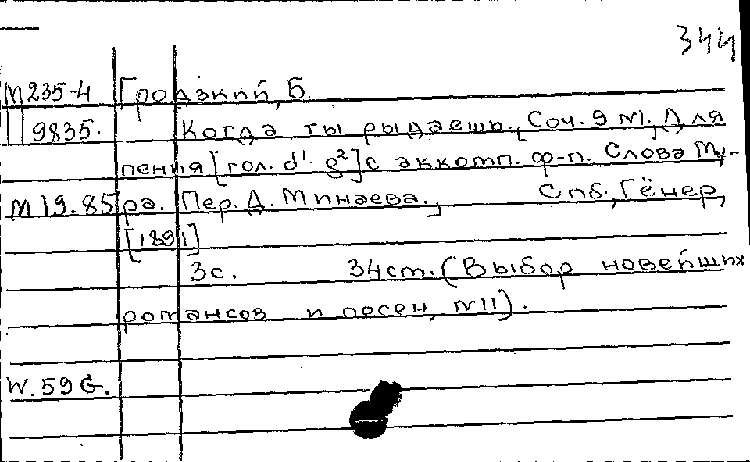 344
М235-4 Гродзкий, Б.
П 9835. Когда ты рыдаешь. Соч. 9 №1. Для
пения [гол. d¹- g²] с аккомп. ф-п. Слова Му-
М19.85 ра. Пер. Д. Минаева. Спб., Гёнер,
[1891]
3с. 34см. (Выбор новейших
романсов и песен, №11).
W.59G.